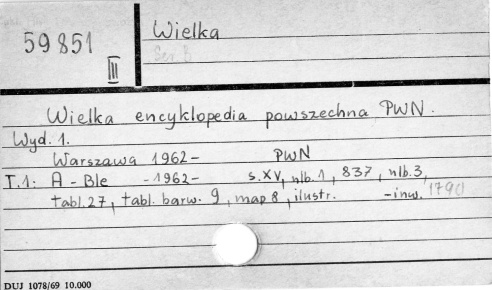 59851
III
Wielka
Ser. B
Wielka encyklopedia powszechna PWN.
Wyd. 1.
Warszawa 1962- PWN
T.1: A - Ble - 1962- s. XV, nlb. 1, 837, nlb. 3,
tabl. 27, tabl. barw. 9, map 8, ilustr. - inw. 1790
DUJ 1078/69 10.000